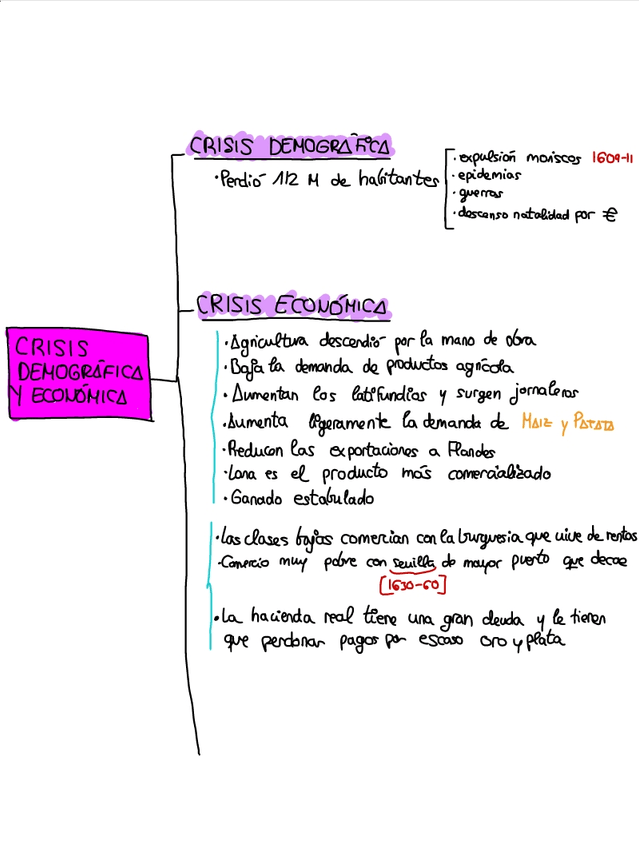 CRISIS DEMOGRÁFICA
· Perdió 1/2 M de habitantes
· expulsión moriscos 1609-11
· epidemias
· guerras
· descenso natalidad por €
CRISIS ECONÓMICA
CRISIS
DEMOGRÁFICA
Y ECONÓMICA
· Agricultura descendió por la mano de obra
· Baja la demanda de productos agrícola
· Aumentan los latifundios y surgen jornaleros
· Aumenta ligeramente la demanda de MAIZ y PATATA
· Reducen las exportaciones a Flandes
· Lana es el producto más comercializado
· Ganado estabulado
· Las clases bajas comercian con la burguesia que vive de rentas
· Comercio muy pobre con sevilla de mayor puerto que decae
[1630-60]
· La hacienda real tiene una gran deuda y le tienen
que perdonar pagos por escaso oro y plata